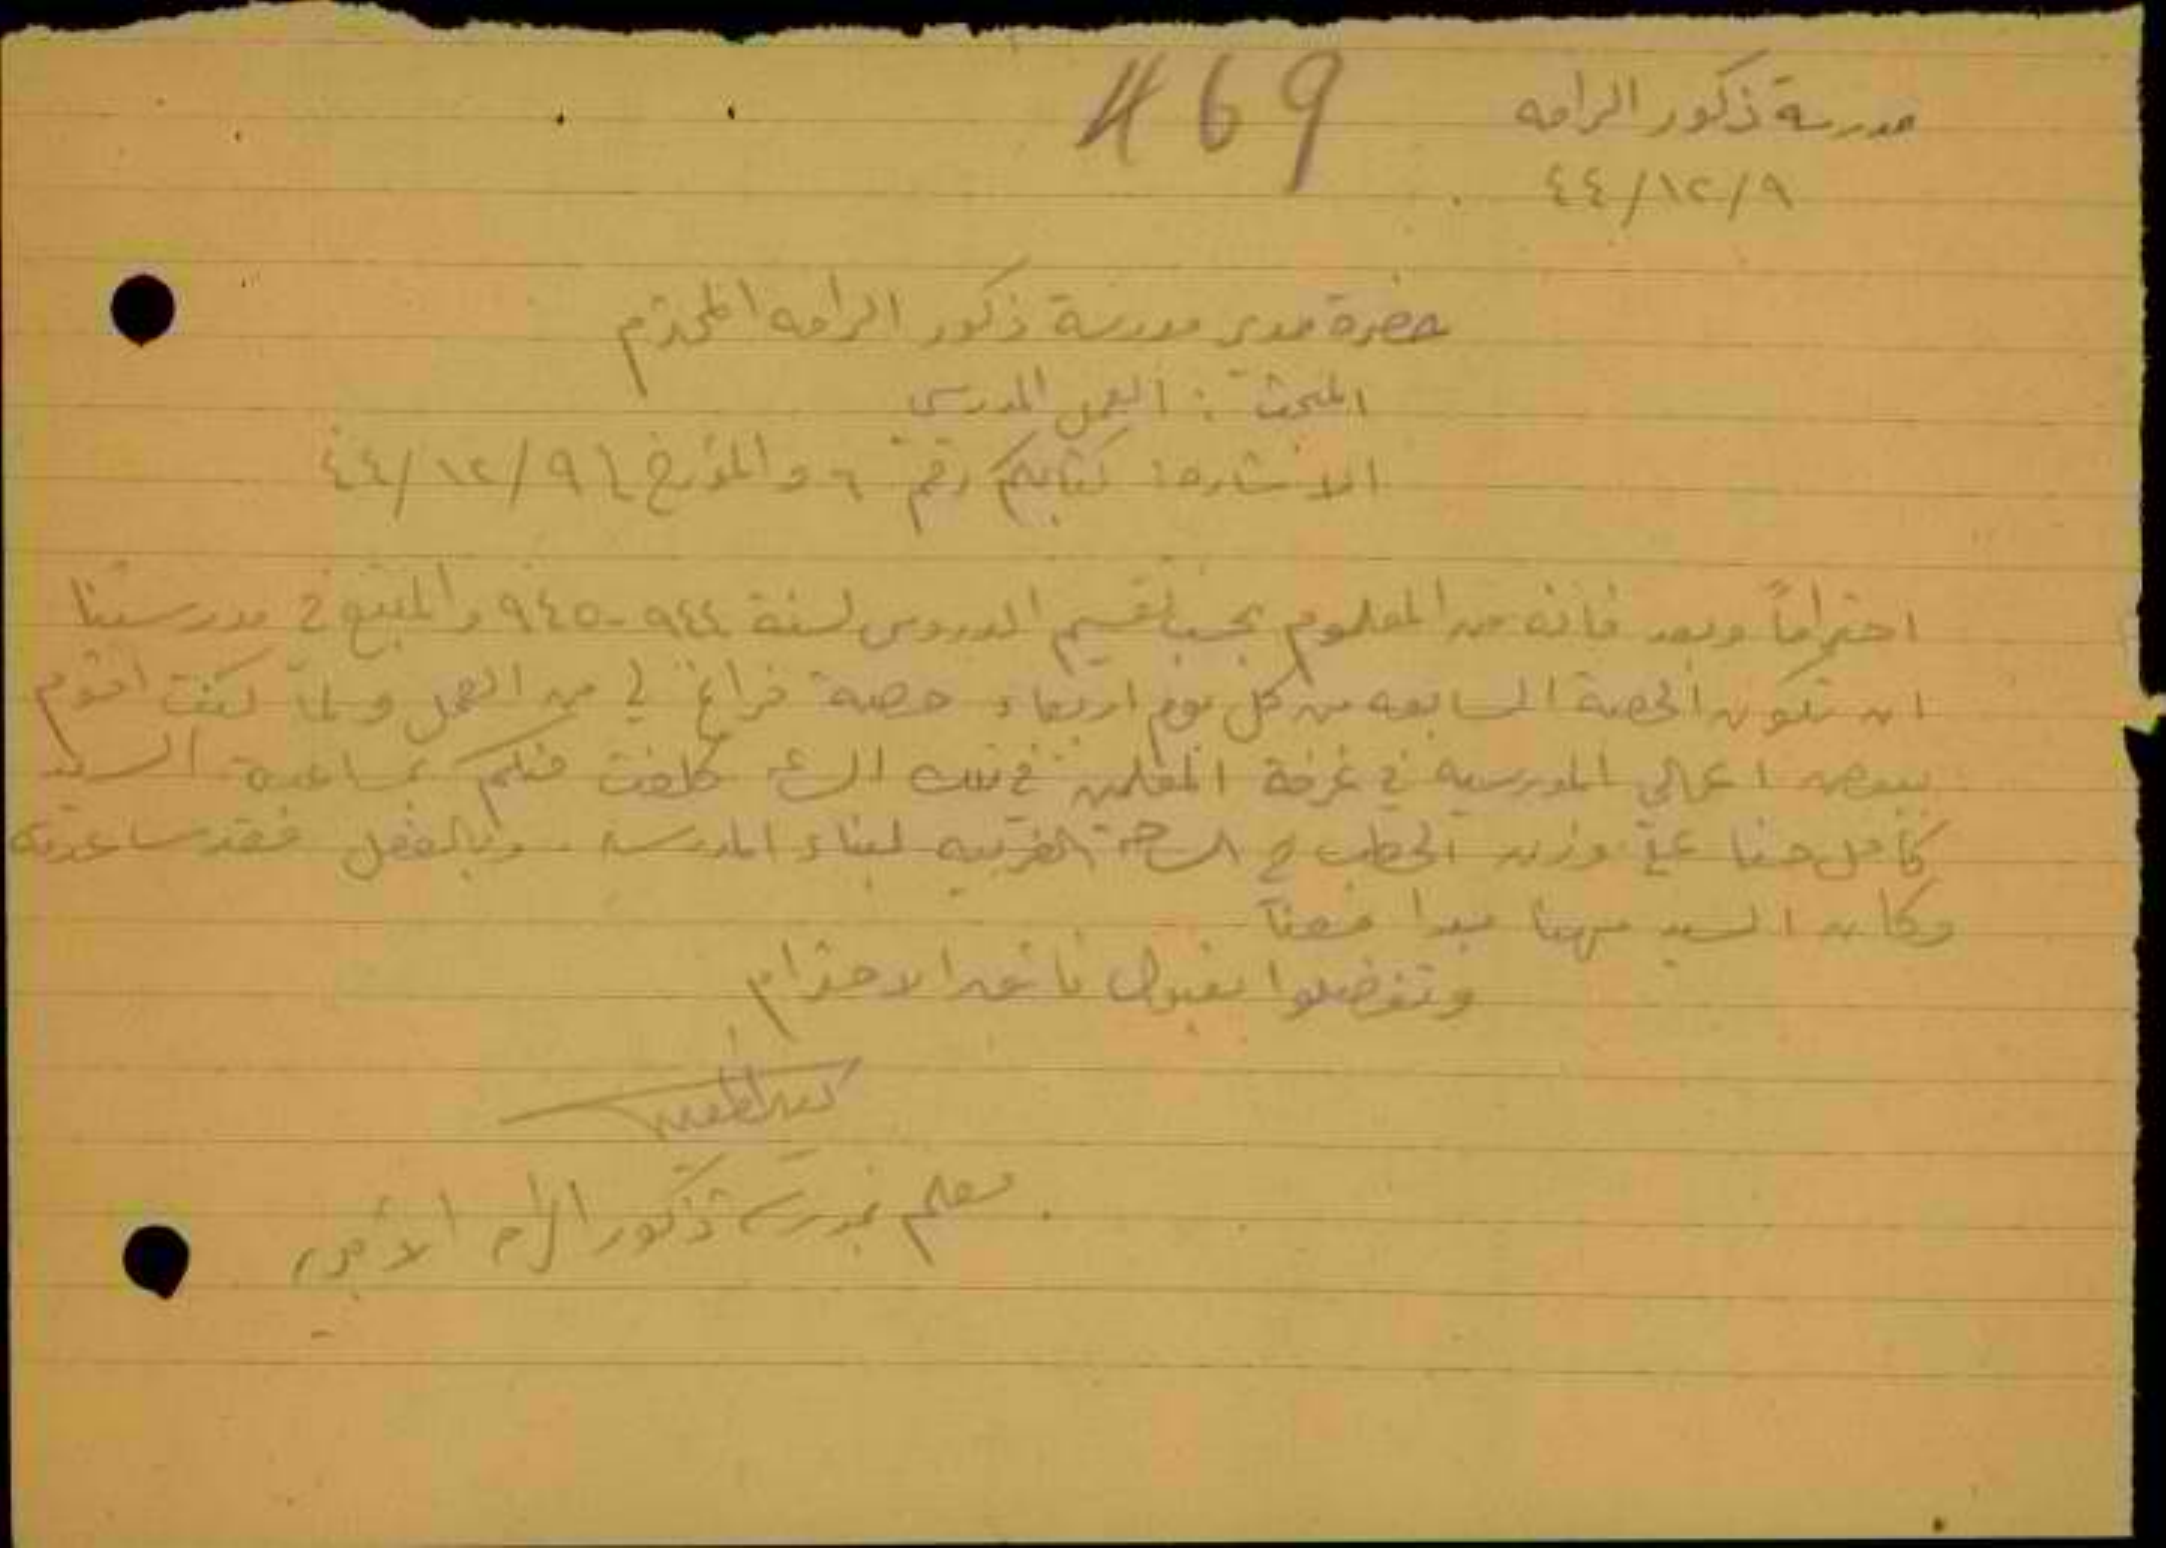 469
مدرسة ذكور الرامه
٤٤/١٢/٩
حضرة مدير مدرسة ذكور الرامه المحترم
المبحث : العمل المدرسي
الاشاره : كتابكم رقم ٦ والمؤرخ ٤٤/١٢/٩
احتراماً وبعد فانه من المعلوم بحسب تقسيم الدروس لسنة ٩٤٤-٩٤٥ والمتبع في مدرستنا
ان تكون الحصة السابعه من كل يوم اربعاء حصة فراغ لي من العمل ولما كنت اقوم
ببعض اعمالي المدرسيه في غرفة المعلمين في تلك كلفت منكم بمساعدة السيد
كامل حنا على وزن الحطب في الساحة الغربيه لبناء المدرسة . وبالفعل فقد ساعدته
وكان السيد مهنا معنا
وتفضلوا بقبول فائق الاحترام
معلم بمدرسة ذكور الرامه الاميريه